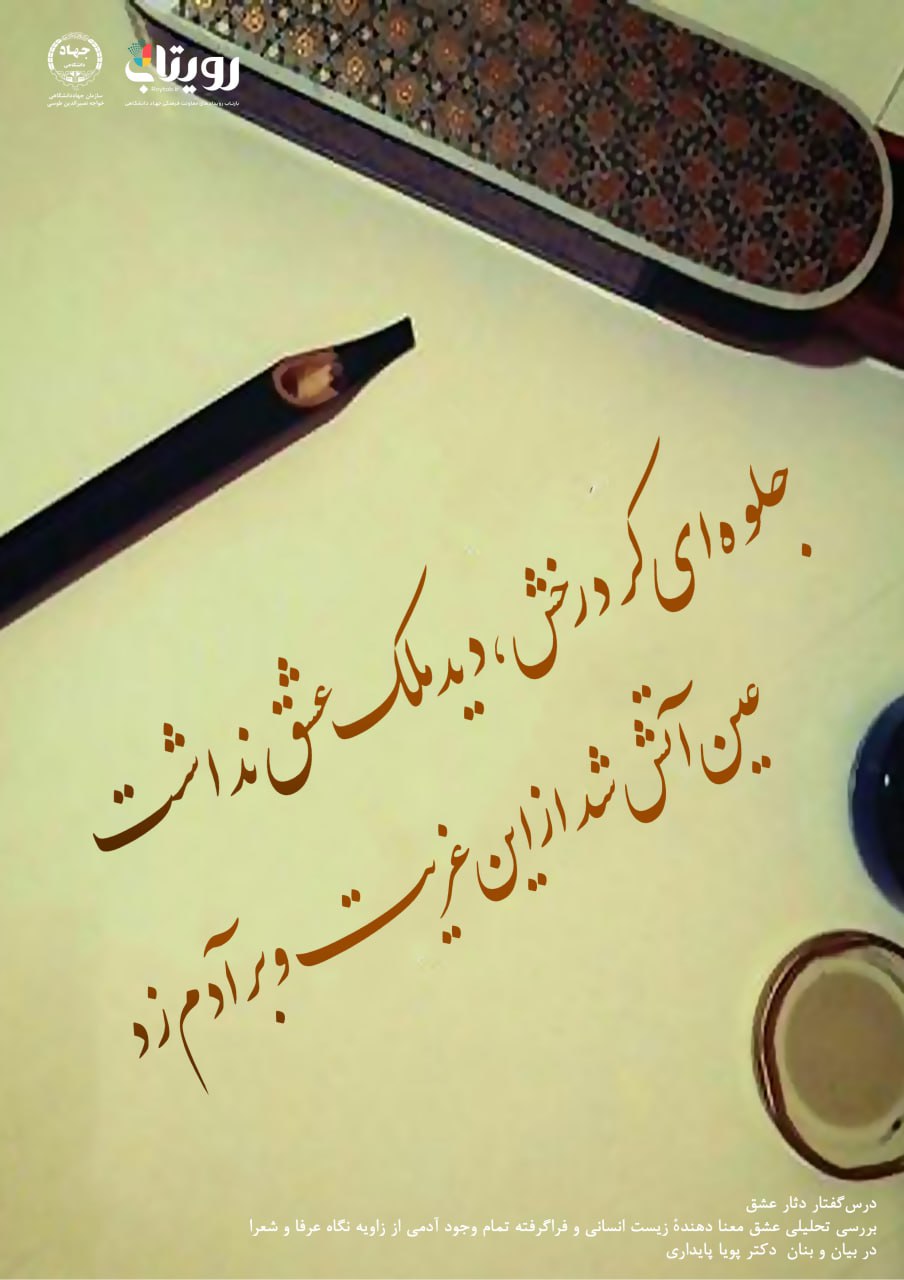 رویتاب
بازتاب رویدادهای معاونت فرهنگی جهاد دانشگاهی
جهاد
دانشگاهی
سازمان جهاددانشگاهی
خواجه نصیرالدین طوسی
جلوه ای کرد رخش، دید ملک عشق نداشت
عین آتش شد از این غیرت و بر آدم زد
درس‌گفتار دثار عشق
بررسی تحلیلی عشق معنا دهندهٔ زیست انسانی و فراگرفته تمام وجود آدمی از زاویه نگاه عرفا و شعرا
در بیان و بنان دکتر پویا پایداری